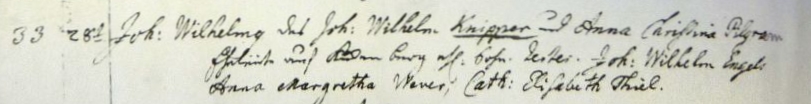 33 28t Joh: Wilhelmg des Joh: Wilhelm Knipper und Anna Christina Pilgram
Eheleute auf berg ehl. Sohn. Testes. Joh: Wilhelm Engels
Anna Margretha Wever, Cath: Elisabeth Thiel.